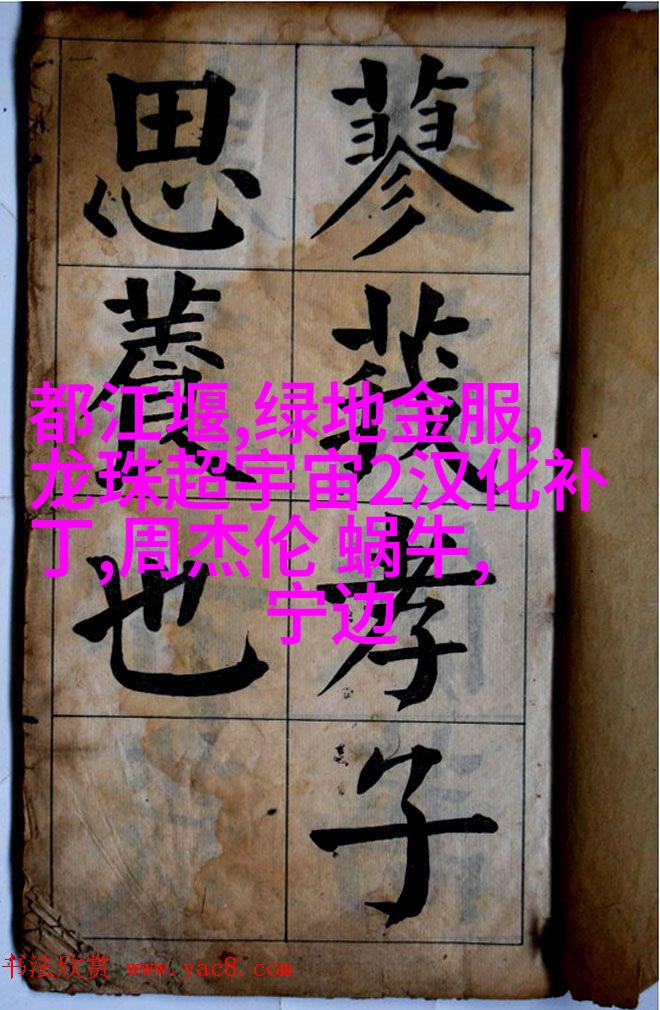 蓼莪孝子
思養也
都江堰,绿地金服,
龙珠超宇宙2汉化补
丁,周杰伦 蜗牛,
宁边
书法欣赏 www.yac8.com